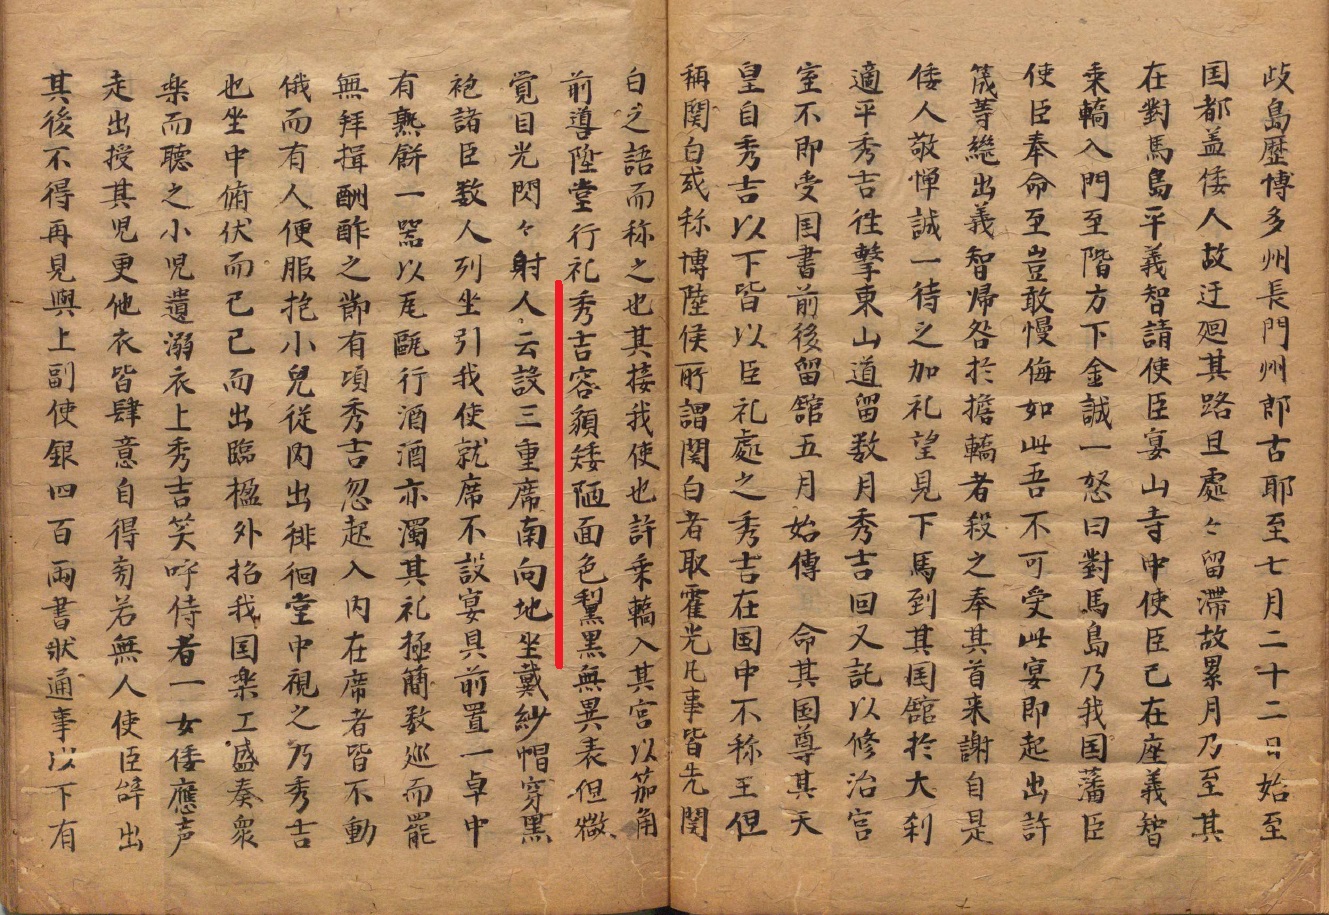 歧島歷博多州長門州郎古耶至七月二十二日始至
国都盖倭人故迂廻其路且處々留滯故累月乃至其
在對馬島平義智請使臣宴山寺中使臣已在座義智
乘轎入門至階方下金誠一怒曰對馬島乃我国藩臣
使臣奉命至豈敢慢侮如此吾不可受此宴即起出許
筬等継出義智帰咎扵擔轎者殺之奉其首来謝自是
倭人敬惮誠一待之加礼望見下馬到其国舘扵大刹
適平秀吉徃擊東山道留数月秀吉回又託以修治宮
室不即受国書前後留舘五月始傳命其国尊其天
皇自秀吉以下皆以臣礼處之秀吉在国中不称王但
稱関白或称博陸侯所謂関白者取霍光凡事皆先関
白之語而称之也其接我使也許乘轎入其宮以笳角
前導陞堂行礼秀吉容貌矮陋面色黧黑無異表但微
覚目光閃々射人云設三重席南向地坐戴紗帽穿黑
袍諸臣数人列坐引我使就席不設宴具前置一卓中
有熟餅一器以瓦甌行酒酒亦濁其礼極簡数巡而罷
無拜揖酬酢之節有頃秀吉忽起入内在席者皆不動
俄而有人便服抱小兒從内出徘徊堂中視之乃秀吉
也坐中俯伏而已已而出臨楹外招我国楽工盛奏衆
楽而聴之小児遺溺衣上秀吉笑呼侍者一女倭應声
走出授其児更他衣皆肆意自得旁若無人使臣辞出
其後不得再見與上副使銀四百両書狀通事以下有